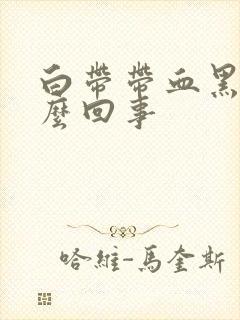 白帶帶血黑
麼回事
哈維-馬奎斯